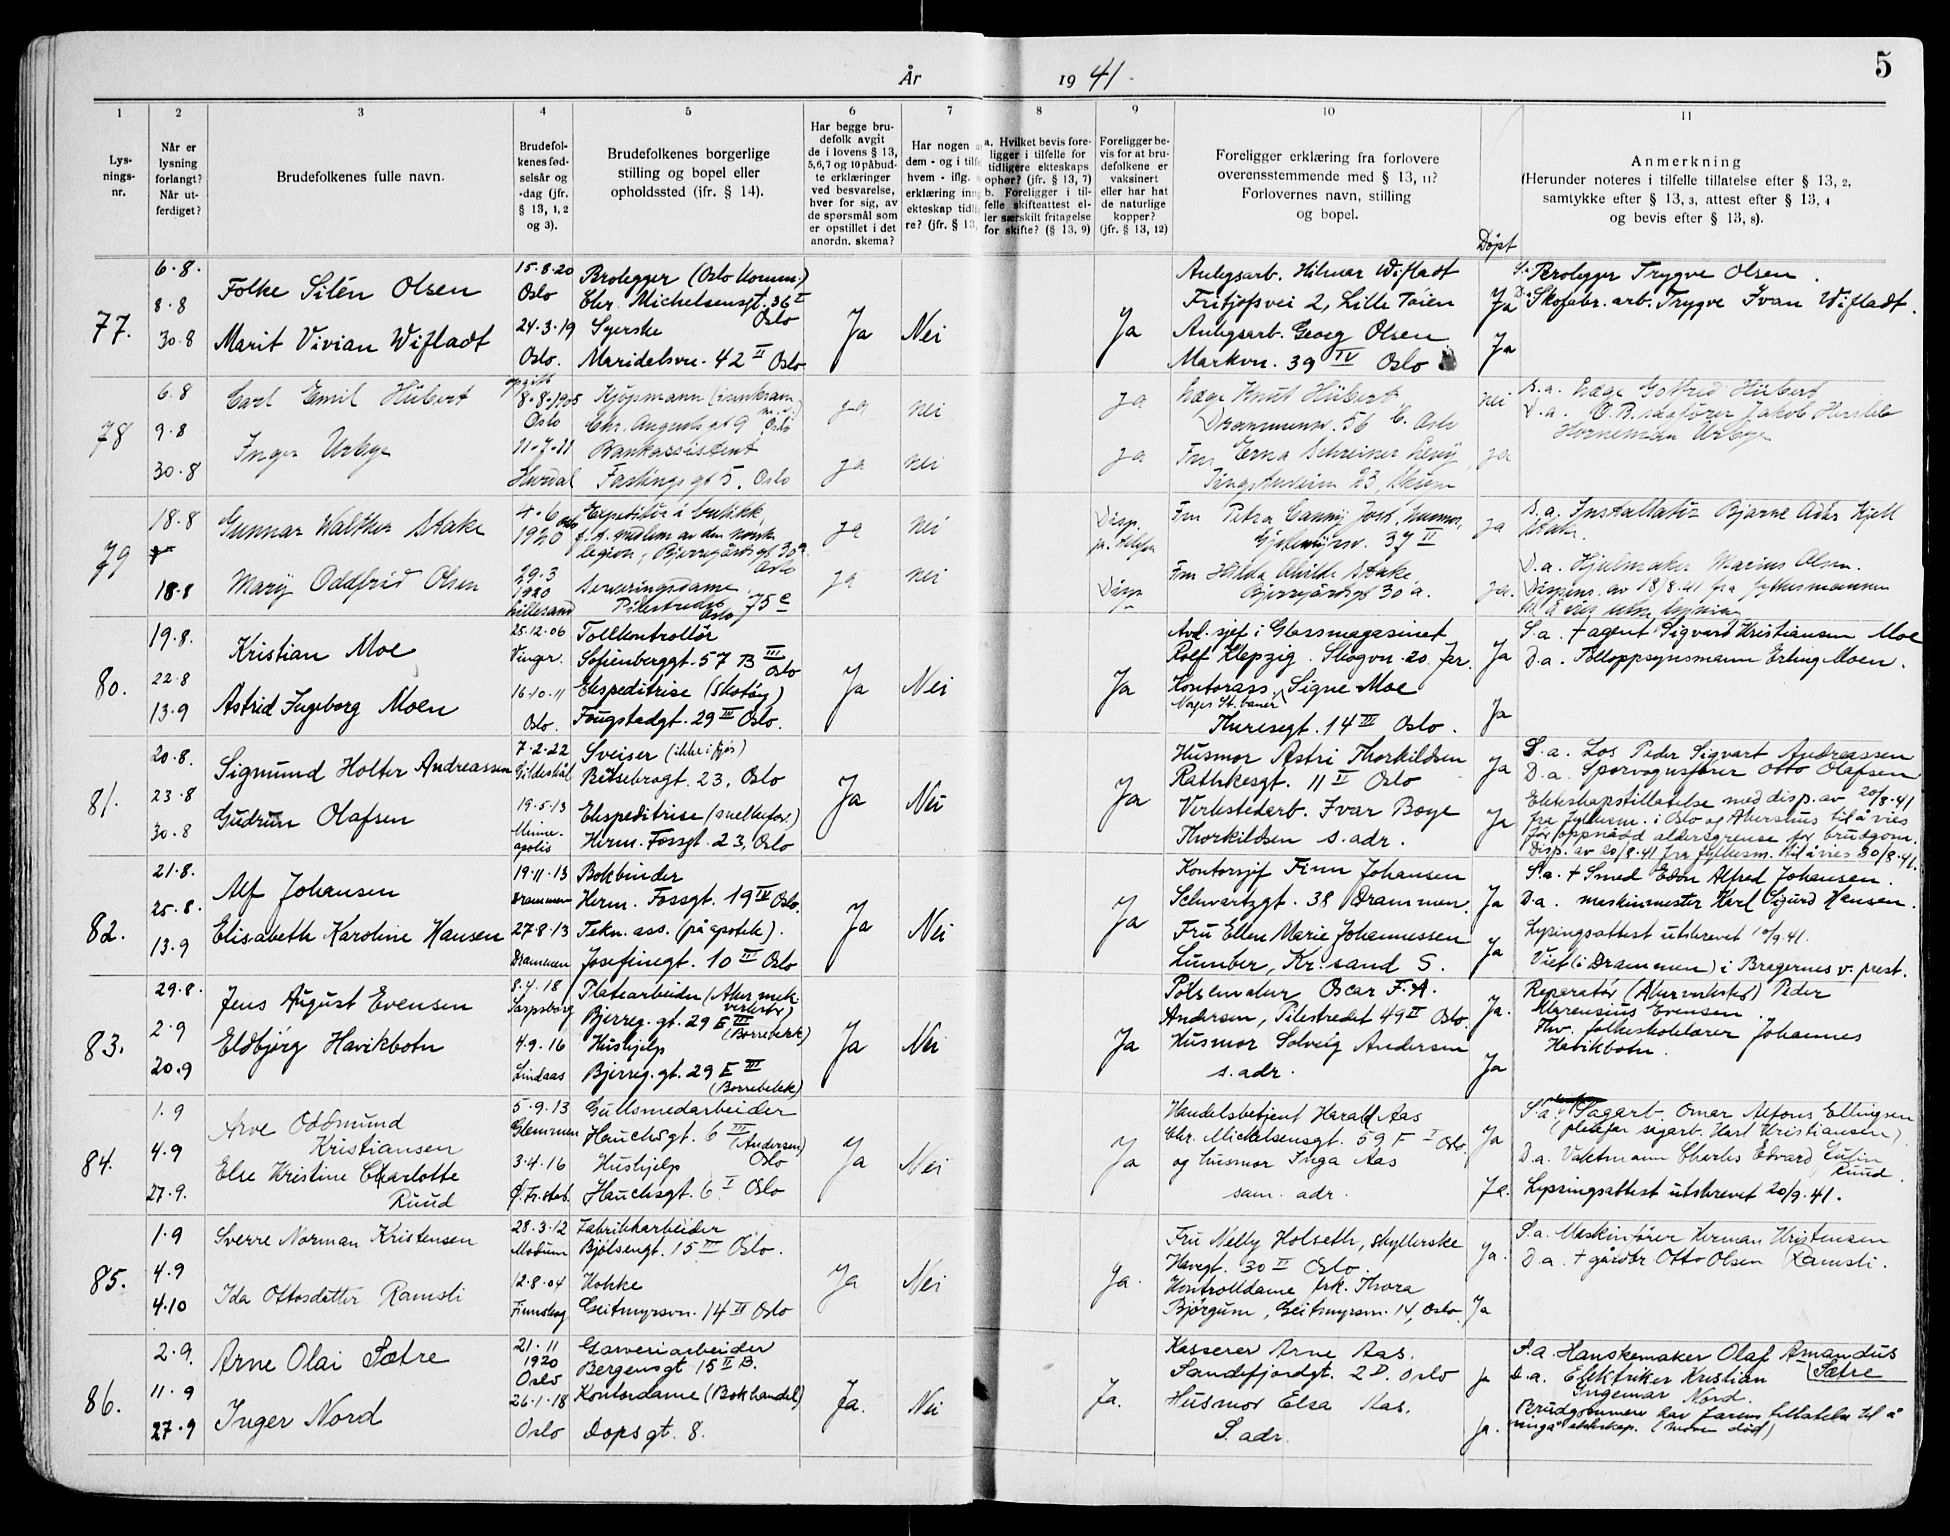 År 1941.
5
1
2
3
4
5
6
7
8
9
10
11
Lysningsnr.
Når er lysning forlangt? Når utferdiget?
Brudefolkenes fulle navn.
Brudefolkenes fødselsår og -dag (jfr. § 13, 1, 2 og 3).
Brudefolkenes borgerlige stilling og bopel eller opholdssted (jfr. § 14).
Har begge brudefolk avgit de i lovens § 13, 5, 6, 7 og 10 påbudte erklæringer ved besvarelse, hver for sig, av de spørsmål som er opstillet i det anordn. skema?
Har nogen dem - og i tilf hvem - iflg. erklæring inn ekteskap tidl re? (jfr. § 13,
a. Hvilket bevis foreligger i tilfelle for tidligere ekteskaps ophør? (jfr. § 13, 7)
b. Foreligger i tilfelle skifteattest eller særskilt fritagelse for skifte? (§ 13, 9)
Foreligger bevis for at brudefolkene er vaksinert eller har hat de naturlige kopper? (jfr. § 13, 12)
Foreligger erklæring fra forlovere overensstemmende med § 13, 11? Forlovernes navn, stilling og bopel.
Døpt
Anmerkning
(Herunder noteres i tilfelle tillatelse efter § 13, 2, samtykke efter § 13, 3, attest efter § 13, 4 og bevis efter § 13, 8).
77.
6.8.
8.8
30.8
Folke Silén Olsen
Marit Vivian Wifladt
15.8.20
Oslo
24.3.19
Oslo.
Brolegger (Oslo komm.)
Chr. Michelsensgt. 36 I
Oslo
Syerske
Maridalsvn. 42 II Oslo
Ja
Nei
Ja
Anlegsarb. Hilmar Wifladt
Fritjofsvei 2, Lille Tøien
Anlegsarb. Georg Olsen
Markvn. 39 IV Oslo
Ja
Ja
S.a. Brolegger Trygve Olsen.
D.a. Skofabr. arb. Trygve Ivan Wifladt.
78
6.8
9.8
30.8
Carl Emil Hübert
Inger Urbye
opgitt
8-8-1905
Oslo
11-7-11
Hurdal
Kjøpmann
Chr. Augustsgt 9 Oslo
Bankassistent
Fastingsgt 5. Oslo
ja
nei
ja
nei
ja
ja
Læge Knut Hübert
Drammensv. 56 C. Oslo
Fru Erna Schreiner Levy
23, Skien
nei
ja
S.a. Læge Gotfred Hübert
D.a. O.R.sagfører Jakob Hersleb
Horneman Urbye
79
18.8
18.8
Gunnar Walther Stake
Mary Oddfrid Olsen
4-6
1920 Oslo
29.3
1920
Lillesand
Expeditør i butikk,
f.t. medlem av den norske
legion, Bjerregårdsgt 30a
Oslo
Serveringsdame
Pilestredet 75 c
Oslo
ja
nei
ja
nei
Disp.
Disp
Fru Petra Canny Jost,
37 II
Fru Hilda Stake,
Bjerregårdsgt 30 a.
ja
ja.
S.a. Installatør Bjarne Kjell
Stake.
D.a. Hjulmaker Marius Olsen.
Dispens. av 18/8.41 fra fylkesmannen
til å vies uten lysning
80.
19.8.
22.8
13.9
Kristian Moe
Astrid Ingeborg Moen
25.12.06
Vinger.
16.10.11
Oslo.
Tollkontrollør
Sofienberggt. 57 B III
Oslo
Ekspeditrise (Skotøy)
Fougstadgt. 29 III Oslo.
Ja
Nei
Ja
Avd. sjef i Glassmagasinet
Rolf Klepzig. Skogvn. 20. Jar.
Kontorass. Signe Moe
Norges St.baner
Theresegt. 14 III Oslo.
Ja
Ja
S.a. + agent Sigvard Kristiansen Moe
D.a. Tolloppsynsmann Erling Moen.
81.
20.8.
23.8
30.8
Sigmund Holter Andreassen
Gudrun Olafsen
7.2.22
Gildeskål
19.5.13
Minneapolis
Sveiser (ikke i fjøs)
Bentsebrogt. 23, Oslo
Ekspeditrise (melkefor.)
Herm. Fossgt. 23, Oslo
Ja
Nei
Ja
Husmor Astri Thorkildsen
Rathkesgt. 11 II Oslo
Verkstedarb. Ivar Boye
Thorkildsen s. adr.
Ja
Ja
S.a. Los Peder Sigvart Andreassen
D.a. Sporvognsfører Otto Olafsen
Ekteskapstillatelse med disp. av 20/8.41
fra fylkesm. i Oslo og Akershus til å vies
før oppnådd aldersgrense for brudgom.
Disp. av 20/8.41 fra fylkesm. til å vies 30/8.41.
82.
21.8.
25.8.
13.9
Alf Johansen
Elisabeth Karoline Hansen
19.11.13
Drammen
27.8.13
Drammen
Bokbinder
Herm. Fossgt. 19 IV Oslo.
Tekn. ass. (på apotek).
Josefinegt. 10 II Oslo
Ja
Nei
Ja
Kontorsjef Finn Johansen
Schwartzgt. 38 Drammen.
Fru Ellen Marie Johannessen
Lumber, Kr.sand S.
Ja
Ja
S.a. + Smed Edon Alfred Johansen.
D.a. maskinmester Karl Sigurd Hansen.
Lysingsattest utskrevet 10/9.41.
Viet (i Drammen) i Bragernes v. prest.
83.
29.8.
2.9
20.9
Jens August Evensen
Eldbjørg Havikbotn
8.4.18
Sarpsborg
4.9.16
Lindaas
Platearbeider (Aker mek. verksted)
Bjerreg. gt. 29 E III
(Borrebekk)
Hushjelp
Bjerreg. gt. 29 E III
(Borrebekk)
Ja
Nei
Ja
Pølsemaker Oscar F. A.
Andersen, Pilestredet 49 II Oslo.
Husmor Solveig Andersen
s. adr.
Ja.
Ja
Reparatør (Akerverksted) Peder
Klarensius Evensen.
Thv. folkeskolelærer Johannes
Havikbotn.
84.
1.9
4.9
27.9.
Arve Oddmund
Kristiansen
Else Kristine Charlotte
Ruud
5.9.13
Glemmen
3.4.16
Ø. Fr.stad.
Gullsmedarbeider
Hauchsgt. 6 III (Andersen)
Oslo
Hushjelp
Hauchsgt. 6 I Oslo
Ja
Nei
Ja
Handelsbetjent Harald Aas
Chr. Michelsensgt. 59 F I Oslo
og husmor Inga Aas
sam. adr.
Ja
Ja.
S.a. Sagarb. Omar Alfons Ellingsen
(pleiefar sagarb. Karl Kristiansen)
D.a. Vaktmann Charles Edvard
Ruud.
Lysingsattest utskrevet 20/9.41.
85.
1.9
4.9
4.10
Sverre Norman Kristensen
Ida Ottosdatter Ramsli
28.3.12
Modum
12.8.04
Finnskog
Fabrikkarbeider
Bjølsengt. 15 III Oslo.
Kokke
Geitmyrsvn. 14 II Oslo
Ja
Nei
Ja.
Fru Nelly Holseth, skyllerske
Havegt. 30 II Oslo.
Kontrolldame frk. Thora
Bjørgum, Geitmyrsvn. 14, Oslo.
Ja.
Ja
S.a. Maskinfører Herman Kristensen
D.a. + gårdbr. Otto Olsen Ramsli.
86.
2.9.
11.9
27.9
Arne Olai Sætre
Inger Nord
21.11
1920
Oslo
26.1.18
Oslo
Garveriarbeider
Bergensgt 15 II B.
Kontordame (Bokhandel)
Dopsgt. 8.
Ja.
Nei
Ja.
Kasserer Arne Aas.
Sandefjordgt. 2 D. Oslo
Husmor Elsa Aas.
S. adr.
Ja
Ja.
S.a. Hanskemaker Olaf Amandus
Sætre
D.a. Elektriker Kristian
Ingemar Nord.
Brudgommen har farens tillatelse til å
inngå ekteskap. (moren død)